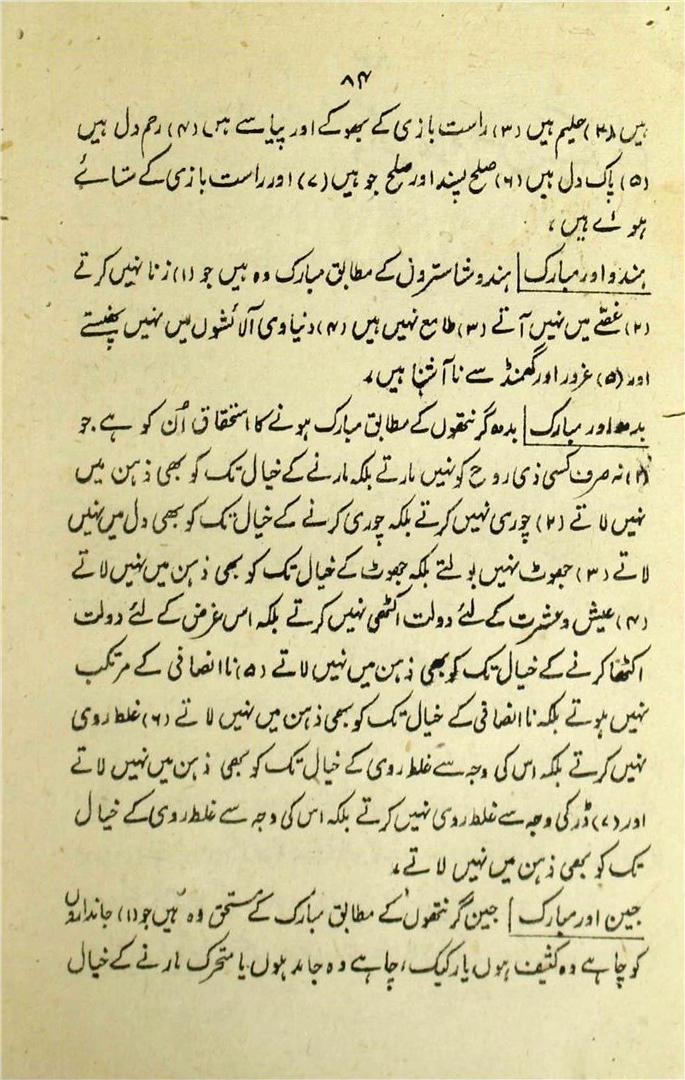 ۸۴
ہیں (۲) حلیم ہیں (۳) راست بازی کے بھوکے اور پیاسے ہیں (۴) رحم دل ہیں
(۵) پاک دل ہیں (۶) صلح پسند اور صلح جو ہیں (۷) اور راست بازی کے ستائے
ہوئے ہیں ،
ہندو اور مبارک | ہندو شاستروں کے مطابق مبارک وہ ہیں جو (۱) زنا نہیں کرتے
(۲) غصے میں نہیں آتے (۳) طامع نہیں ہیں (۴) دنیاوی آلائشوں میں نہیں پھنستے
اور (۵) غرور اور گھمنڈ سے نا آشنا ہیں ۔
بدھ اور مبارک | بدھ گرنتھوں کے مطابق مبارک ہونے کا استحقاق اُن کو ہے ۔ جو
(۱) نہ صرف کسی ذی روح کو نہیں مارتے بلکہ مارنے کے خیال تک کو بھی ذہن میں
نہیں لاتے (۲) چوری نہیں کرتے بلکہ چوری کرنے کے خیال تک کو بھی دل میں نہیں
لاتے (۳) جھوٹ نہیں بولتے بلکہ جھوٹ کے خیال تک کو بھی ذہن میں نہیں لاتے
(۴) عیش و عشرت کے لئے دولت اکٹھی نہیں کرتے بلکہ اس غرض کے لئے دولت
اکٹھا کرنے کے خیال تک کو بھی ذہن میں نہیں لاتے (۵) نا انصافی کے مرتکب
نہیں ہوتے بلکہ نا انصافی کے خیال تک کو بھی ذہن میں نہیں لاتے (۶) غلط روی
نہیں کرتے بلکہ اس کی وجہ سے غلط روی کے خیال تک کو بھی ذہن میں نہیں لاتے
اور (۷) ڈر کی وجہ سے غلط روی نہیں کرتے بلکہ اس کی وجہ سے غلط روی کے خیال
تک کو بھی ذہن میں نہیں لاتے ۔
جین اور مبارک | جین گرنتھوں کے مطابق مبارک کے مستحق وہ ہیں جو (۱) جانداروں
کو چاہے وہ کثیف ہوں یا رکیک ، چاہے وہ جامد ہوں یا متحرک مارنے کے خیال